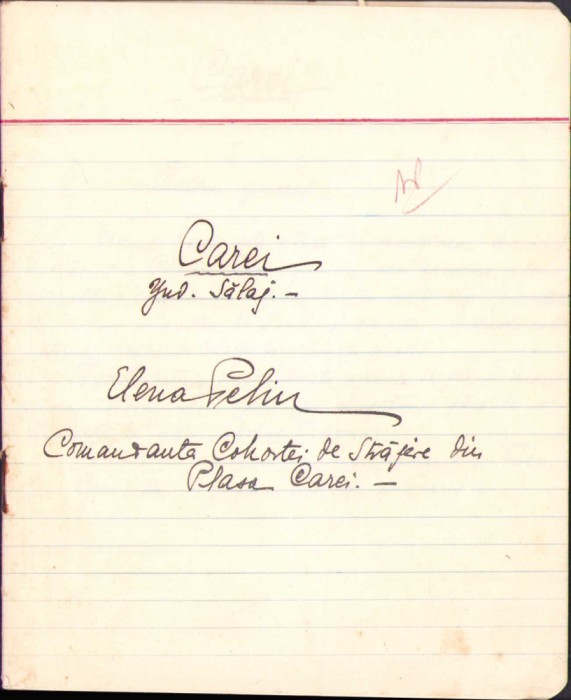 Carei
Jud. Sălaj. -
Elena Pelin
Comandanta Cohortei de Străjere din
Plasa Carei. -